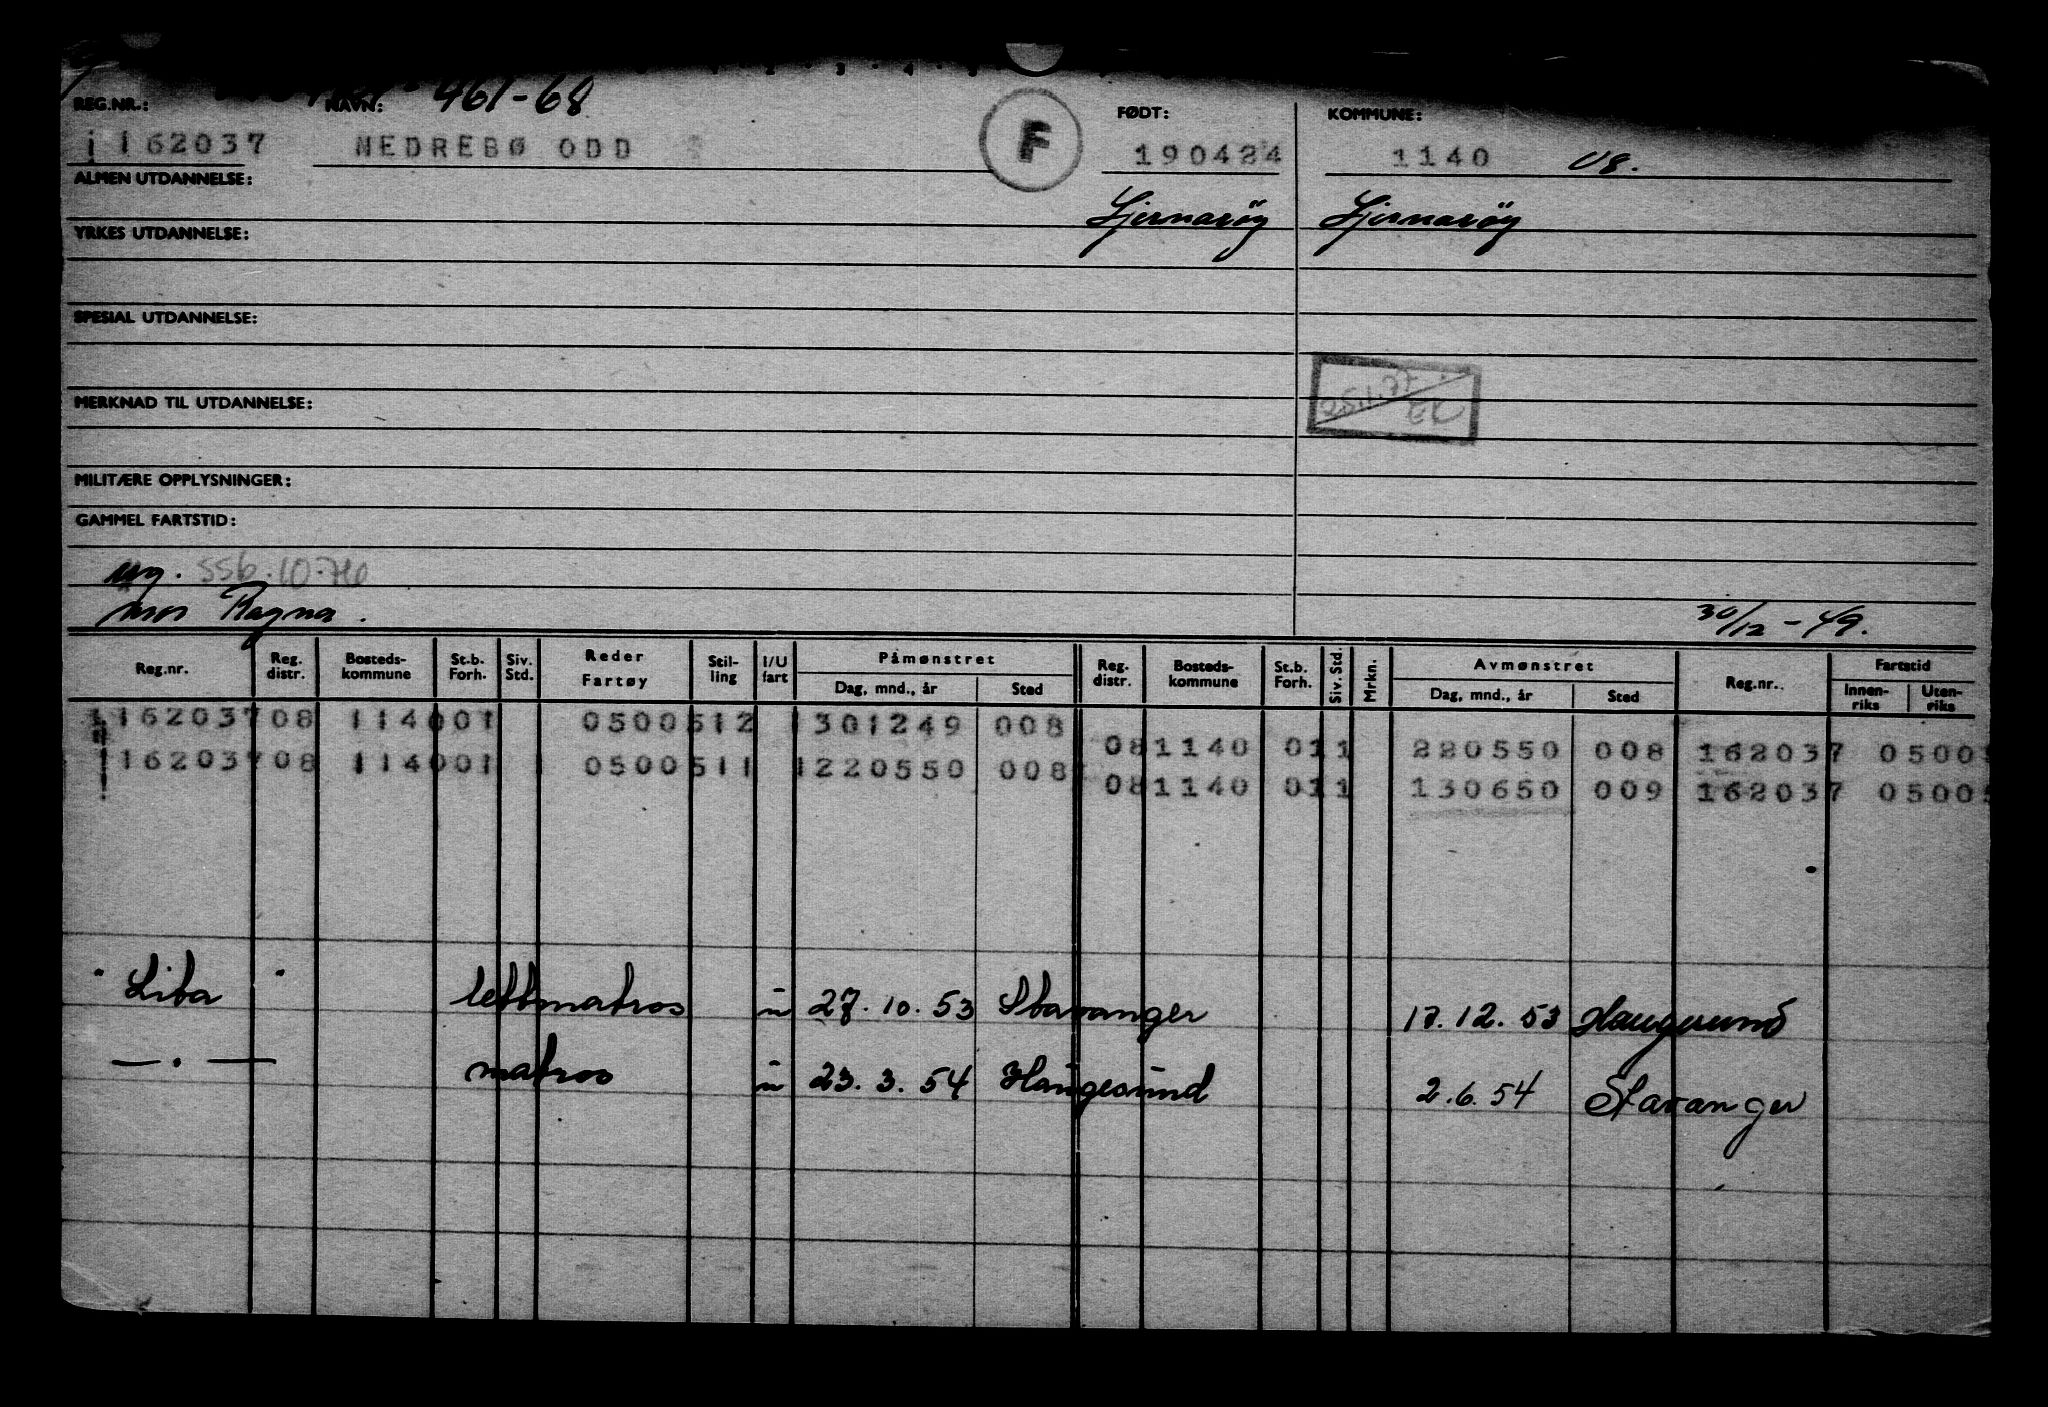 461-68
REG.NR.: NAVN: FØDT: KOMMUNE:
162037 NEDREBØ ODD F 190424 1140 08.
ALMEN UTDANNELSE:
Sjernarøy Sjernarøy
YRKES UTDANNELSE:
SPESIAL UTDANNELSE:
MERKNAD TIL UTDANNELSE:
MILITÆRE OPPLYSNINGER:
GAMMEL FARTSTID:
ug. 556.10.76
mor Ragna. 30/12-49.
Reg.nr. Reg. distr. Bosteds-kommune St.b. Forh. Siv. Std. Reder Fartøy Stil-ling I/U fart Påmønstret Dag, mnd., år Sted Reg. distr. Bosteds-kommune St.b. Forh. Siv. Std. Mrkn. Avmønstret Dag, mnd., år Sted Reg.nr. Fartstid Innen-riks Uten-riks
162037 08 1140 01 0500 512 301249 008
081140 011 220550 008 162037 05005
162037 08 1140 01 0500 511 1220550 008
081140 011 130650 009 162037 05005
"Liba" lettmatros u 27.10.53 Stavanger 17.12.53 Haugesund
—.— matros u 23.3.54 Haugesund 2.6.54 Stavanger